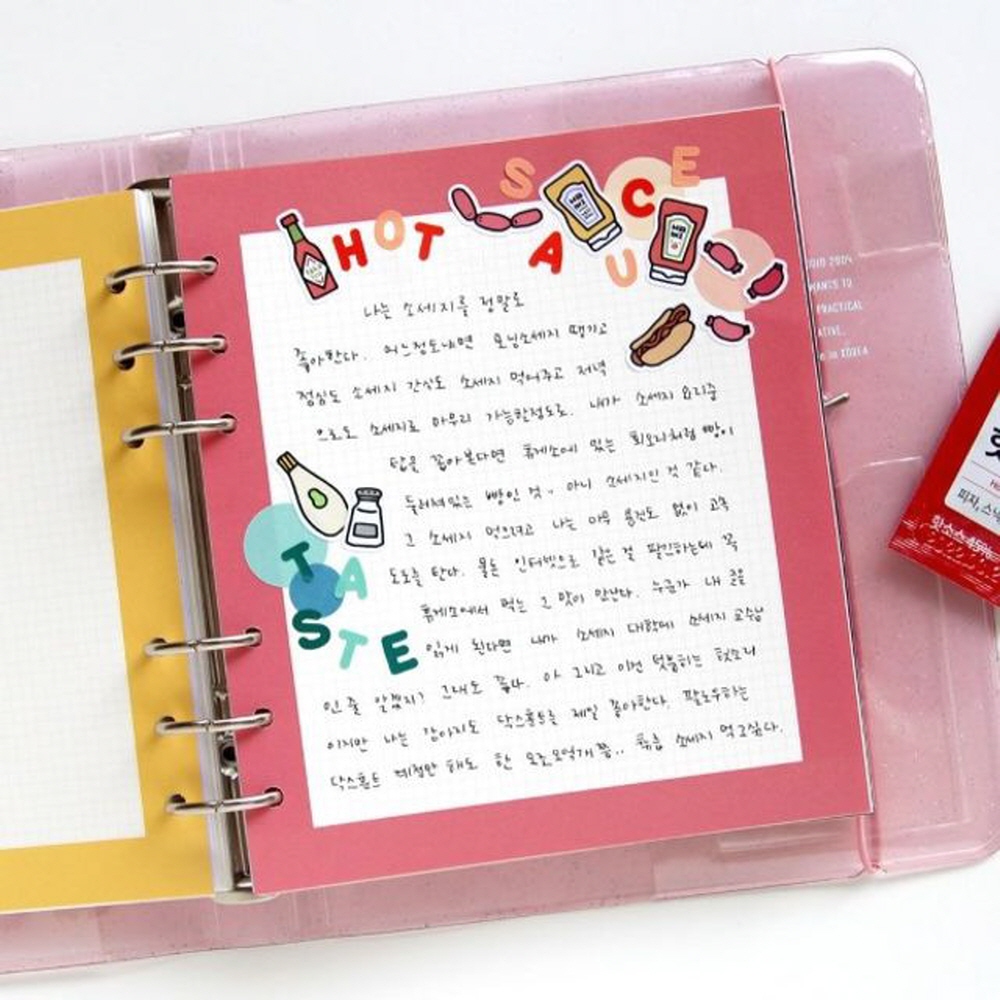 HOT SAUCE
나는 소세지를 정말로
좋아한다. 어느정도냐면 모닝소세지 땡기고
점심도 소세지 간식도 소세지 먹어주고 저녁
으로도 소세지로 마무리 가능할정도로. 내가 소세지 요리중
탑을 꼽아본다면 휴게소에 있는 회오리처럼 빵이
둘러져있는 빵인 것, 아니 소세지인 것 같다.
그 소세지 먹으려고 나는 아무 용건도 없이 고속
도로를 탄다. 물론 인터넷으로 같은 걸 팔긴하는데 꼭
휴게소에서 먹는 그 맛이 안난다. 누군가 내 글을
TASTE
읽게 된다면 내가 소세지 대학에 소세지 교수님
인 줄 알겠지? 그래도 좋다. 아 그리고 이건 덧붙이는 헛소리
이지만 나는 강아지도 닥스훈트를 제일 좋아한다. 팔로우하는
닥스훈트 계정만 해도 한 오조오억개쯤.. 휴 소세지 먹고싶다.
2004
WANTS TO
PRACTICAL
in KOREA
핫소스 45%